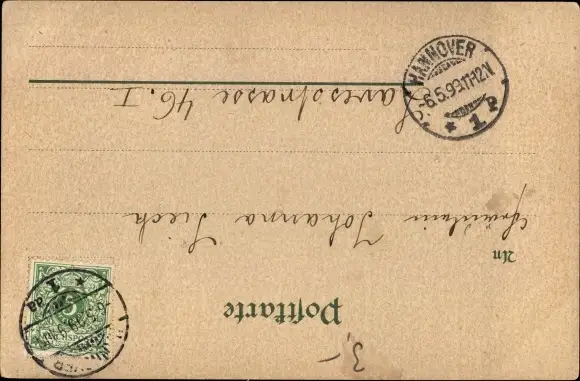 Postkarte
An
Fräulein Johanna Siech
Lavesstrasse 46. I
HANNOVER
6.5.99.11-12N
* 1 P
3,-